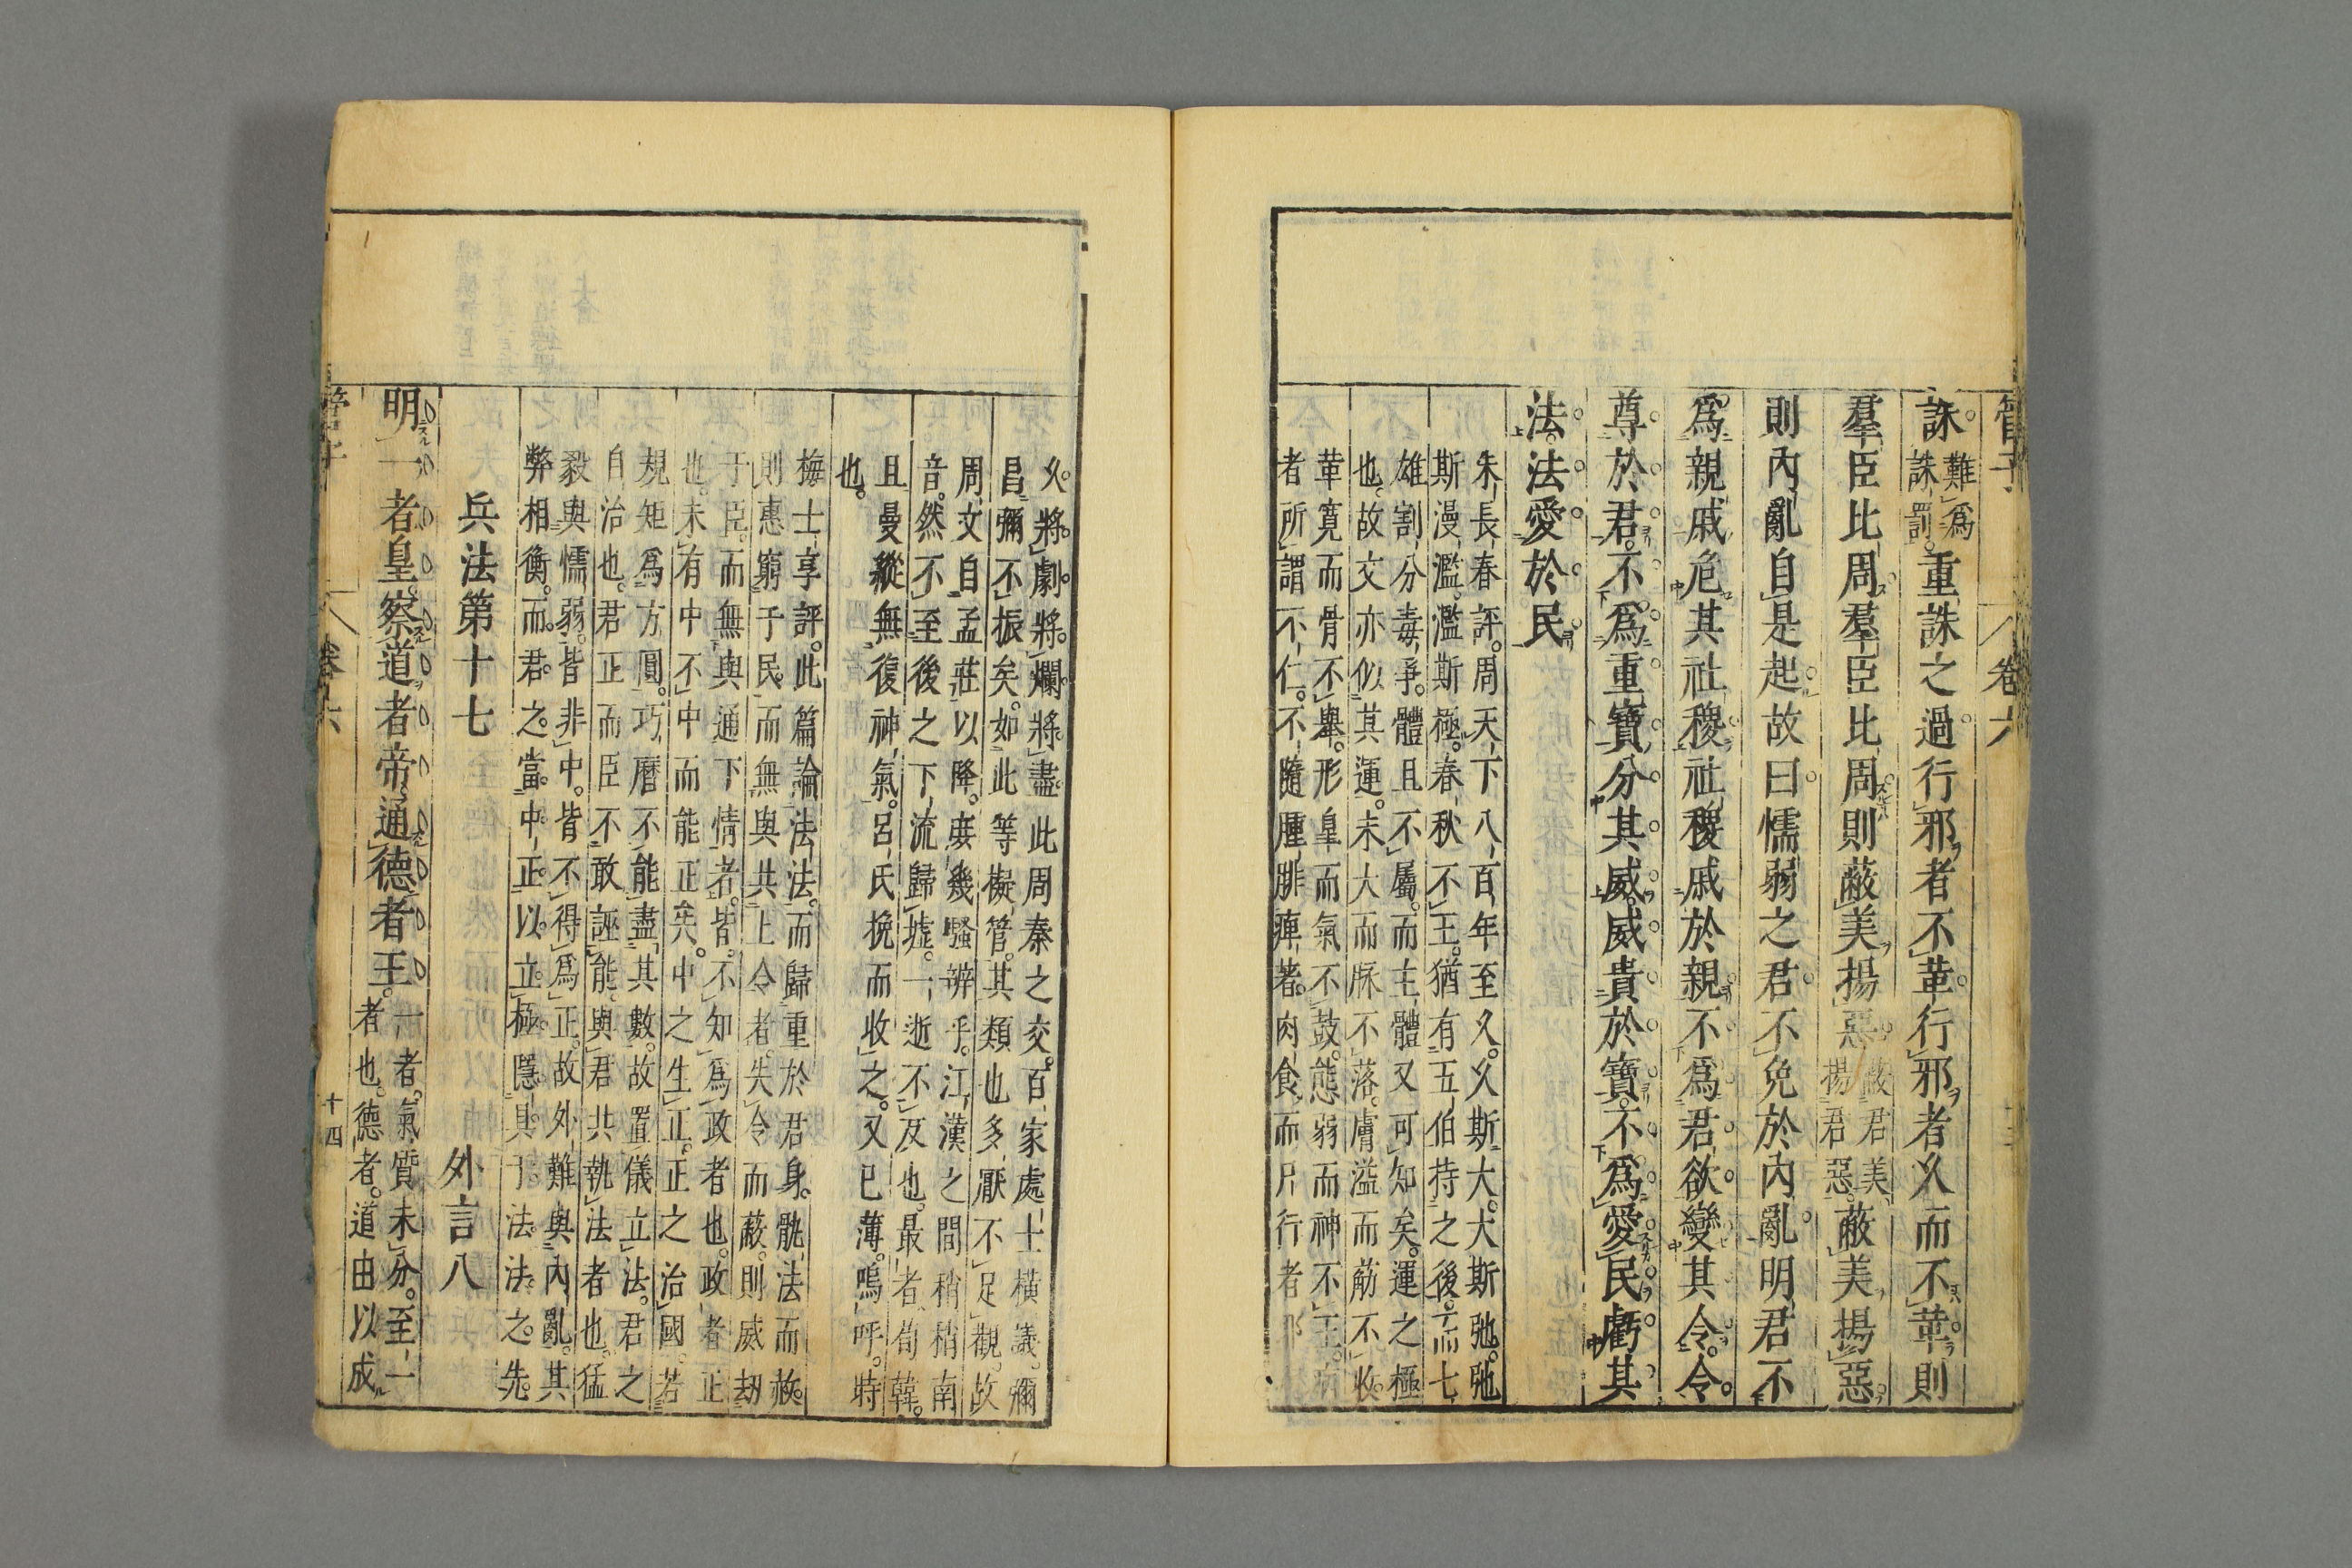 管子 卷六
誅難爲誅罰。重誅之過行邪者不革行邪者久而不革則
羣臣比周羣臣比周則蔽美揚惡蔽君美揚君惡。蔽美揚惡
則內亂自是起故曰懦弱之君不免於內亂明君不
爲親戚危其社稷社稷戚於親不爲君欲變其令令
尊於君不爲重寶分其威威貴於寶不爲愛民虧其
法法愛於民
朱長春評。周天下八百年至久。久斯大。大斯弛。弛
斯漫濫。濫斯極。春秋不王。猶有五伯持之後而七
雄割分毒爭。體且不屬。而主體又可知矣。運之極
也。故文亦似其運。未大而脉不落。膚溢而筋不收。
革寬而骨不舉。形皇而氣不鼓。態弱而神不王。
者所謂不仁。不隨腫腓痺著。肉食而尸行者
久。將劇將爛將盡。此周秦之交。百家處士橫議。彌
昌彌不振矣。如此等擬管。其類也多厭不足觀。故
周文自孟莊以降。妄幾騷辨乎。江漢之間稍稍南
音。然不至後之下流歸墟。一逝不反也。最者荀韓。
且曼縱無復神氣。呂氏挽而收之。又已薄。嗚呼。時
也。
梅士享評。此篇論法法。而歸重於君身。骫法而赦。
則惠窮于民。而無與共上令者。失令而蔽。則威劫
于臣。而無與通下情者。皆不知爲政者也。政者正
也。未有中不中而能正矣。中之生正。正之治國。若
規矩爲方圓。巧曆不能盡其數。故置儀立法。君之
自治也。君正而臣不敢誣能。與君共執法者也。猛
毅與懦弱。皆非中。皆不得爲正。故外難與內亂。其
弊相衡。而君之當中正。以立極隱。具于法法之先。
兵法第十七 外言八
明一者皇。察道者帝。通德者王。一者。氣質未分。至一者也。德者。道由以成
管子 卷六 十四